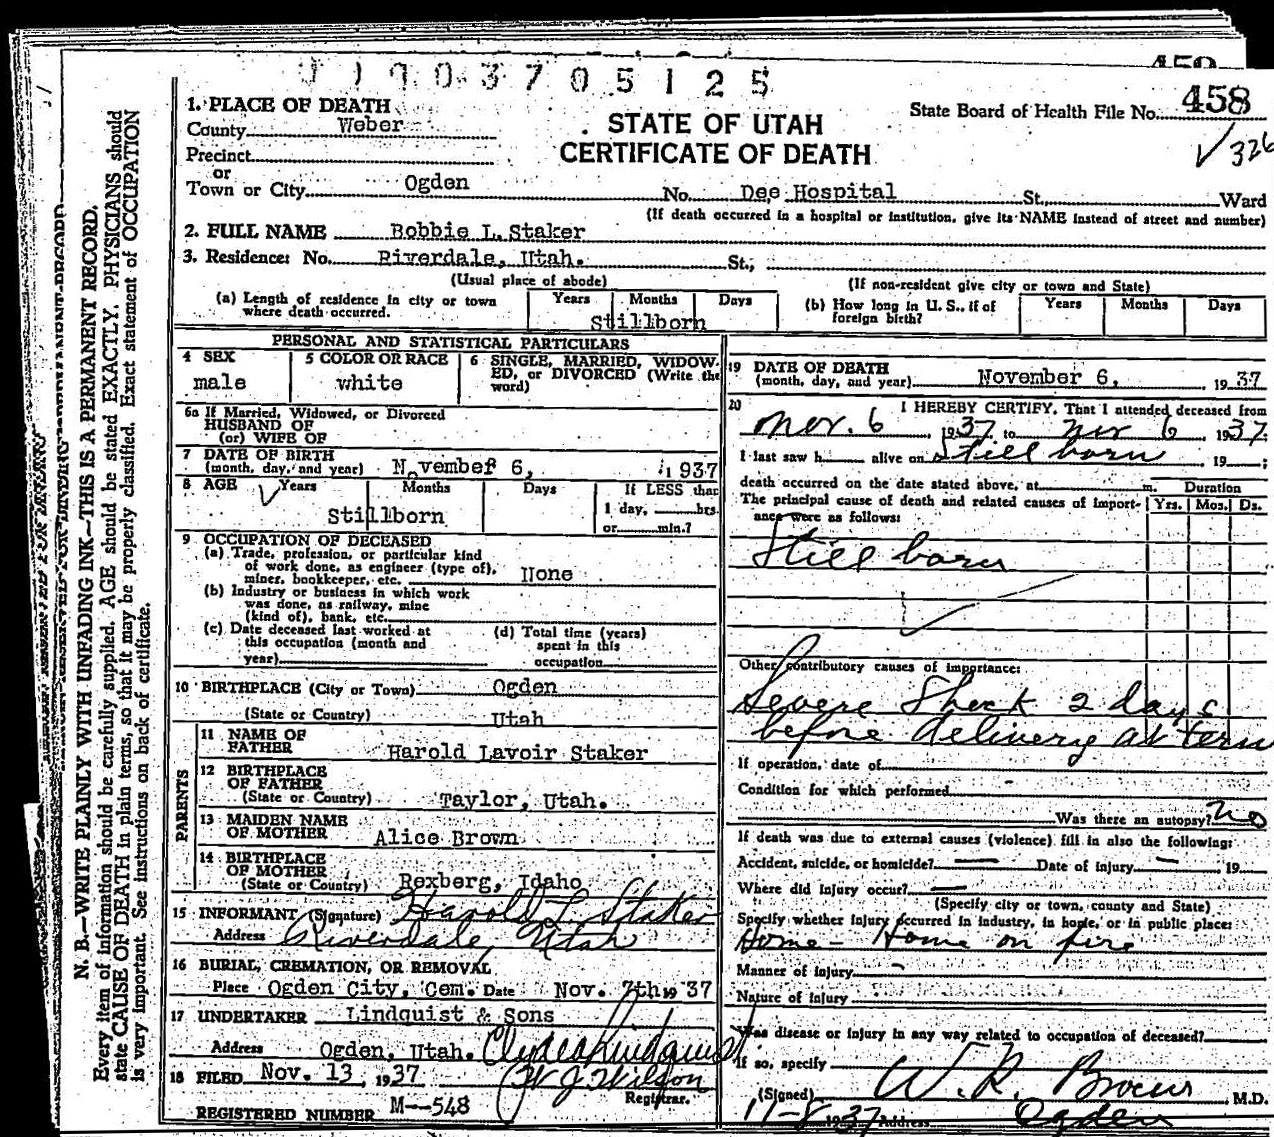 1 1 9 0 3 7 0 5 1 2 5
458
State Board of Health File No. 458
326
STATE OF UTAH
CERTIFICATE OF DEATH
1. PLACE OF DEATH
County Weber
Precinct
or
Town or City Ogden No. Dee Hospital St., Ward
(If death occurred in a hospital or institution, give its NAME instead of street and number)
2. FULL NAME Bobbie L. Staker
3. Residence: No. Riverdale, Utah. St.,
(Usual place of abode) (If non-resident give city or town and State)
(a) Length of residence in city or town where death occurred. Years Months Days
Stillborn
(b) How long in U. S., if of foreign birth? Years Months Days
PERSONAL AND STATISTICAL PARTICULARS
4 SEX male
5 COLOR OR RACE white
6 SINGLE, MARRIED, WIDOWED, or DIVORCED (Write the word)
6a If Married, Widowed, or Divorced
HUSBAND OF
(or) WIFE OF
7 DATE OF BIRTH
(month, day, and year) November 6, 1937
8 AGE Years Months Days If LESS than
1 day, hrs.
or min.?
Stillborn
9 OCCUPATION OF DECEASED
(a) Trade, profession, or particular kind
of work done, as engineer (type of),
miner, bookkeeper, etc. None
(b) Industry or business in which work
was done, as railway, mine
(kind of), bank, etc.
(c) Date deceased last worked at
this occupation (month and
year)
(d) Total time (years)
spent in this
occupation
10 BIRTHPLACE (City or Town) Ogden
(State or Country) Utah
PARENTS
11 NAME OF
FATHER Harold Lavoir Staker
12 BIRTHPLACE
OF FATHER
(State or Country) Taylor, Utah.
13 MAIDEN NAME
OF MOTHER Alice Brown
14 BIRTHPLACE
OF MOTHER
(State or Country) Rexberg, Idaho
15 INFORMANT (Signature) Harold L Staker
Address Riverdale, Utah
16 BURIAL, CREMATION, OR REMOVAL
Place Ogden City, Cem. Date Nov. 7th 19 37
17 UNDERTAKER Lindquist & Sons
Address Ogden, Utah. Clyde Lindquist
18 FILED Nov. 13, 1937 W J Wilson
Registrar.
REGISTERED NUMBER M--548
19 DATE OF DEATH
(month, day, and year) November 6, 1937
20 I HEREBY CERTIFY, That I attended deceased from
Nov. 6, 1937 to Nov 6, 1937;
I last saw h alive on Still born, 19 ;
death occurred on the date stated above, at m. Duration
The principal cause of death and related causes of importance were as follows: Yrs. Mos. Ds.
Still born
Other contributory causes of importance:
Severe Shock 2 days
before delivery at term
If operation, date of
Condition for which performed
Was there an autopsy? No
If death was due to external causes (violence) fill in also the following:
Accident, suicide, or homicide? — Date of injury — 19
Where did injury occur? —
(Specify city or town, county and State)
Specify whether injury occurred in industry, in home, or in public place:
Home - Home on fire
Manner of injury
Nature of injury
Was disease or injury in any way related to occupation of deceased?
If so, specify
(Signed) W. R. Brown, M.D.
11-8 1937 Address Ogden
N. B.—WRITE PLAINLY WITH UNFADING INK—THIS IS A PERMANENT RECORD.
Every item of information should be carefully supplied. AGE should be stated EXACTLY. PHYSICIANS should
state CAUSE OF DEATH in plain terms, so that it may be properly classified. Exact statement of OCCUPATION
is very important. See instructions on back of certificate.